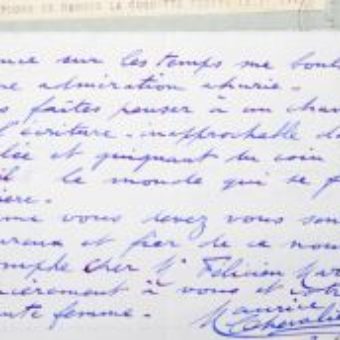 nce sur les temps me boul
ne admiration ahurie.
s faites penser à un cha
l'écriture - inapprochable d
lée et guignant du coin
il le monde qui se f
ière.
me vous devez vous sen
ureux et fier de ce nou
omphe cher Mr Félicien M
ncièrement à vous et votre
ante femme.
Maurice
Chevalie